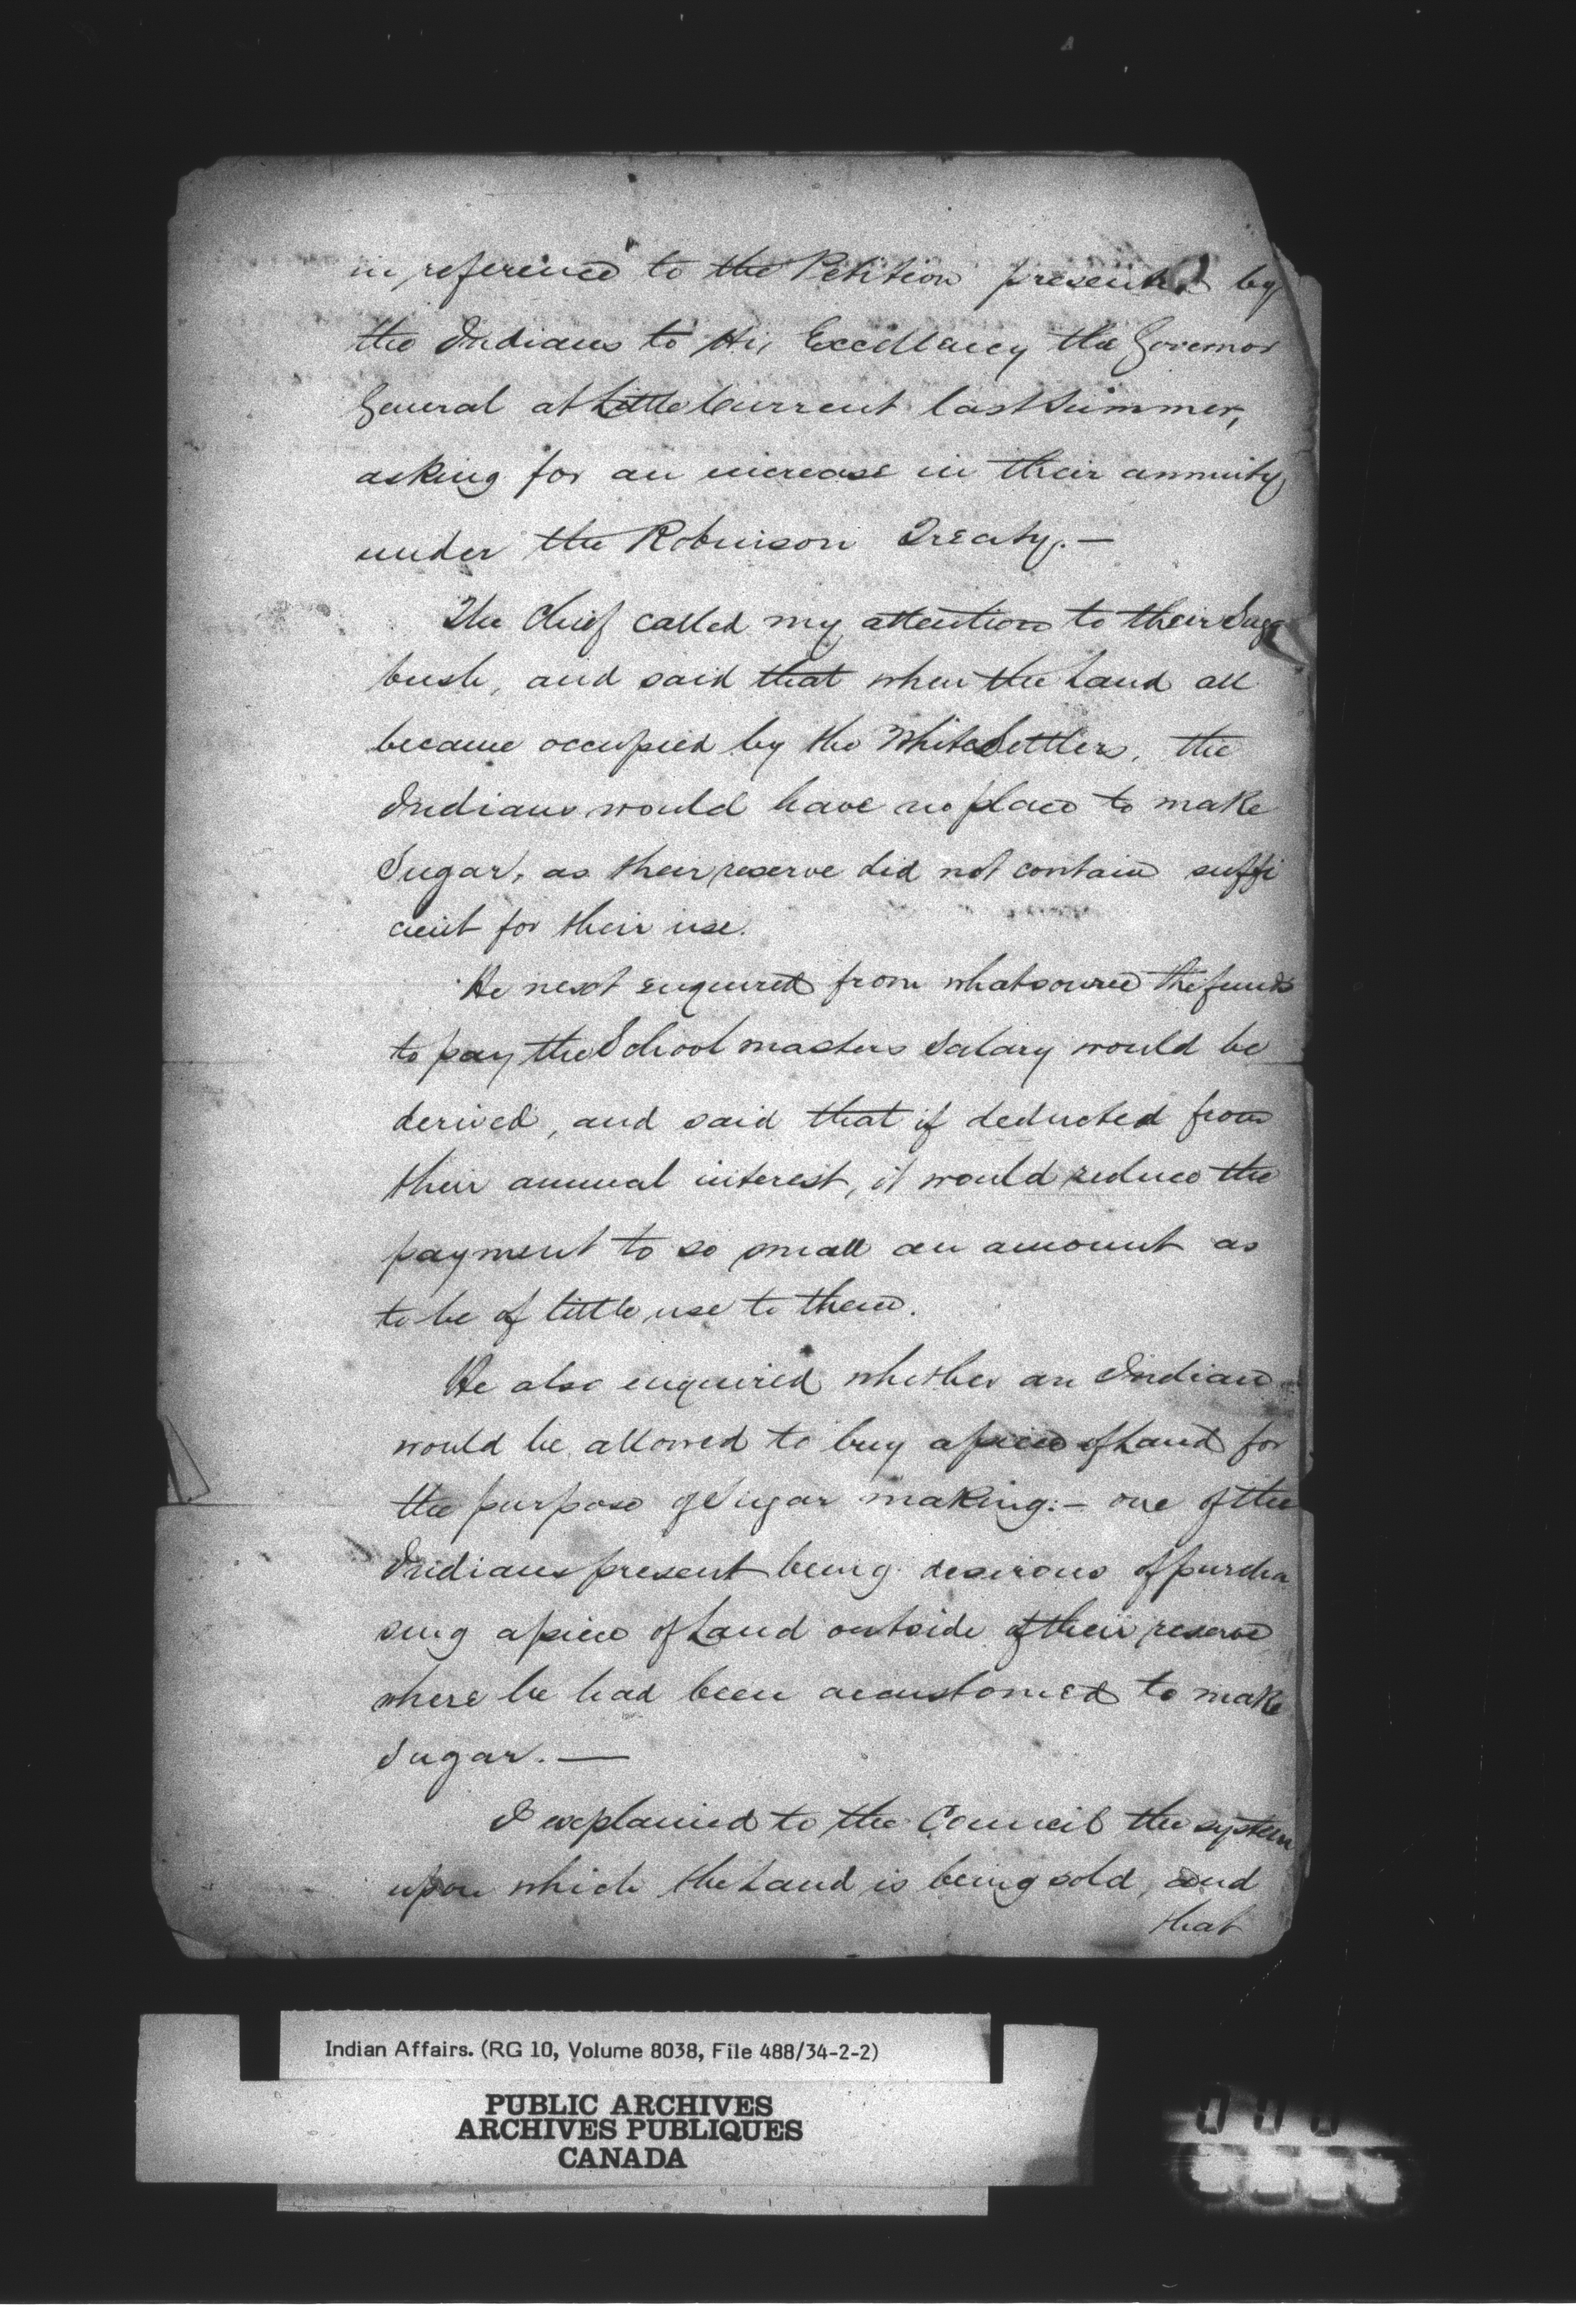 in reference to the Petition presented by
the Indians to His Excellency the Governor
General at Little Current last Summer,
asking for an increase in their annuity
under the Robinson Treaty. —
The Chief called my attention to their Suga
bush, and said that when the Land all
became occupied by the White Settlers, the
Indians would have no place to make
Sugar, as their reserve did not contain suffi
cient for their use.
He next enquired from what source the funds
to pay the School masters Salary would be
derived, and said that if deducted from
their annual interest, it would reduce the
payment to so small an amount as
to be of little use to them.
He also enquired whether an Indian
would be allowed to buy a piece of Land for
the purpose of Sugar making: — one of the
Indians present being desirous of purcha
sing a piece of Land outside of their reserve
where he had been accustomed to make
Sugar. —
I explained to the Council the system
upon which the Land is being sold, and
that
Indian Affairs. (RG 10, Volume 8038, File 488/34-2-2)
PUBLIC ARCHIVES
ARCHIVES PUBLIQUES
CANADA
000